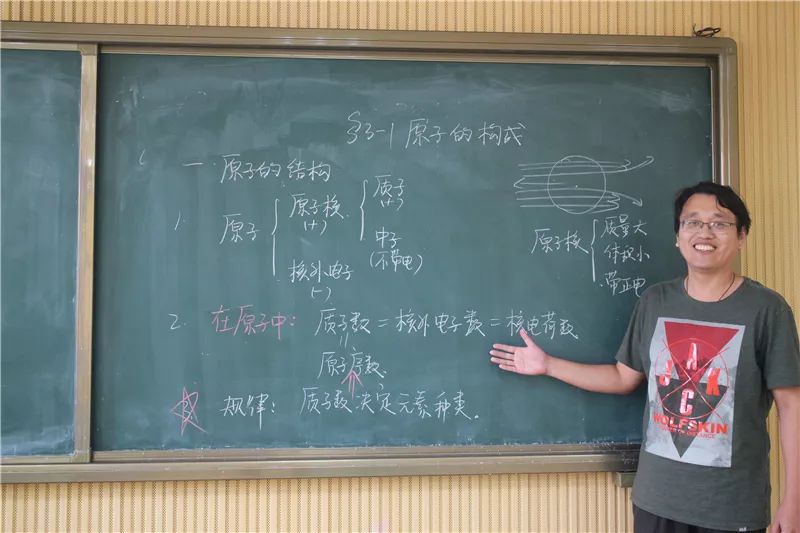 §3-1 原子的构成
一. 原子的结构
1. 原子 { 原子核 (+) { 质子 (+)
中子 (不带电)
核外电子 (-)
原子核 { 质量大
体积小
带正电
2. 在原子中： 质子数 = 核外电子数 = 核电荷数
=
原子序数
规律： 质子数决定元素种类。
JACK
WOLFSKIN